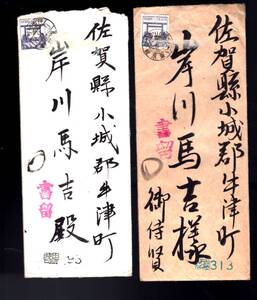 佐賀縣小城郡牛津町
岸川馬吉様
御侍賢
書留
313
佐賀縣小城郡牛津町
岸川馬吉殿
書留